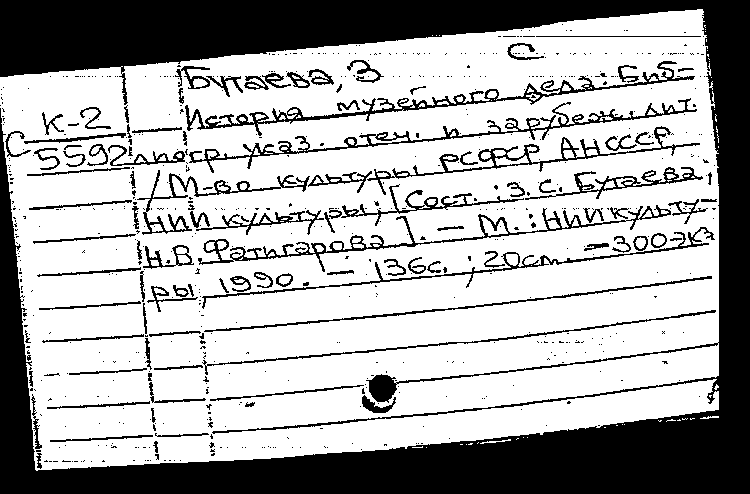 С
Бутаева, З
К-2
История музейного дела: Биб-
С
5592 лиогр. указ. отеч. и зарубеж. лит.
/ М-во культуры РСФСР, АНСССР,
НИИ культуры; [Сост.: З. С. Бутаева;
Н.В. Фатигарова]. — М.: НИИ культу-
ры, 1990. — 136с.; 20см. — 300экз